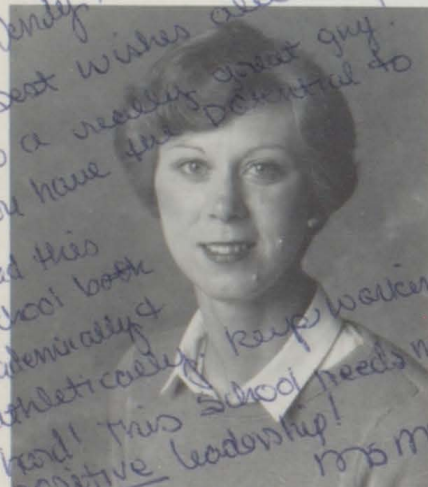 best wishes
a really great guy.
have the potential to
this
school both
academically &
athletically; keep working
hard! This school needs
positive leadership!